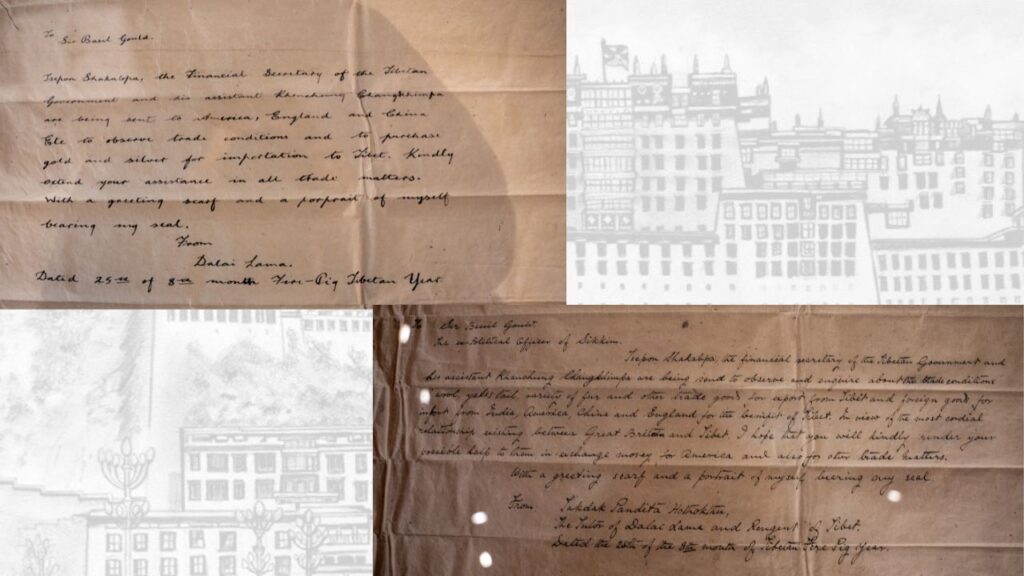 To
Sir Basil Gould.
Tsepon Shakabpa, the Financial Secretary of the Tibetan
Government and his assistant Khenchung Changkhimpa
are being sent to America, England and China
Etc to observe trade conditions and to purchase
gold and silver for importation to Tibet. Kindly
extend your assistance in all trade matters.
With a greeting scarf and a porprait of myself
bearing my seal.
From
Dalai Lama.
Dated 25th of 8th month Fire-Pig Tibetan Year
To Sir Basil Gould.
The ex-Political Officer of Sikkim.
Tsepon Shakabpa, the financial secretary of the Tibetan Government and
his assistant Khenchung Changkhimpa are being send to observe and enquire about the trade conditions
wool, yaks tail variety of fur and other trade goods for export from Tibet and foreign goods for
import from India, America, China and England for the benifit of Tibet. In view of the most cordial
relationship existing between Great Brittain and Tibet, I hope that you will kindly render your
possible help to them in exchange money for America and also for other trade matters.
With a greeting scarf and a portrait of myself bearing my seal
From Takdak Pandita
The Tutor of Dalai Lama and Reagent of Tibet.
Dated the of the 8th month of Tibetan Fire Pig Year.